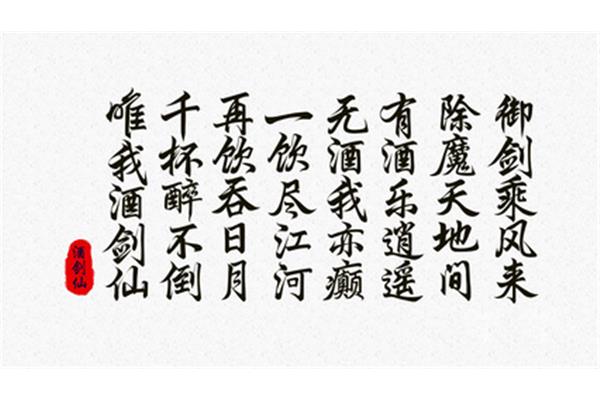 御剑乘风来
除魔天地间
有酒乐逍遥
无酒我亦癫
一饮尽江河
再饮吞日月
千杯醉不倒
唯我酒剑仙
酒剑仙